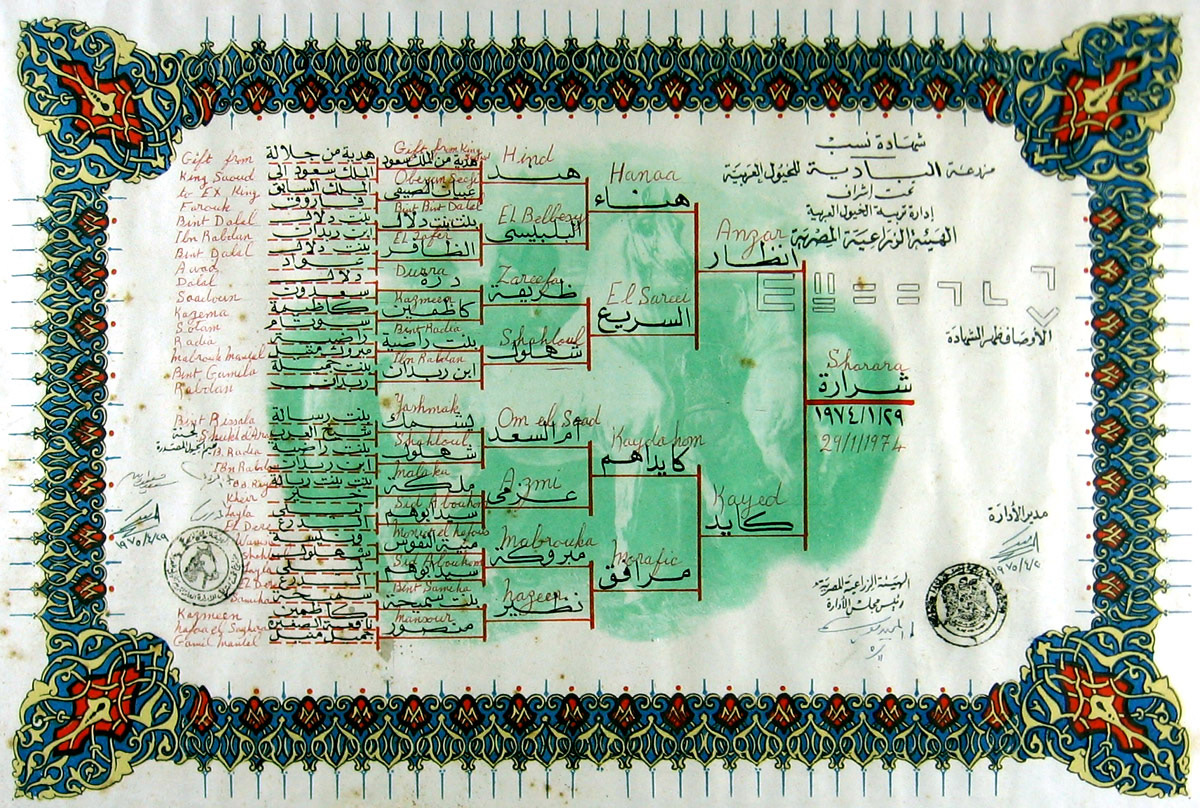 شهادة نسب
مزرعة البادية للخيول العربية
تحت إشراف
إدارة تربية الخيول العربية
الهيئة الزراعية المصرية
الأوصاف بظهر الشهادة
Sharara
شرارة
١٩٧٤/١/٢٩
29/1/1974
Anzar
انظار
Kayed
كايد
Hanaa
هناء
El Sareei
السريع
Kaydahom
كايداهم
Morafic
مرافق
Hind
هند
EL Belbesy
البلبيسى
Zareefa
ظريفة
Shahloul
شهلول
Om el Saad
ام السعد
Azmi
عزمى
Mabrouka
مبروكة
Nazeer
نظير
Gift from King
هدية من الملك سعود
عبيان الصيفى
Bint Bint Dalal
بنت بنت دلال
EL Zafer
الظافر
Durra
درة
Kazmeen
كاظمين
Bint Radia
بنت راضية
Ibn Rabdan
ابن ربدان
Yashmak
يشمك
Shahloul
شهلول
Malaka
ملكة
Sid Abouhom
سيد ابوهم
منية النفوس
Sid Abouhom
سيد ابوهم
Bint Samiha
بنت سميحة
Mansour
منصور
Gift from هدية من جلالة
King Saoud الملك سعود إلى
to EX King الملك السابق
Farouk فاروق
Bint Dalal بنت دلال
Ibn Rabdan ابن ربدان
Bint Dalal بنت دلال
Awaad عواد
Dalal دلال
Saadoun سعدون
Kazema كاظيمة
Sotam سوتام
Radia راضية
Mabrouk Manial مبروك منيل
Bint Gamila بنت جميلة
Rabdan ربدان
Bint Rissala بنت رسالة
شيخ العرب
B. Radia بنت راضية
Ibn Rabdan ابن ربدان
Kheir خير
Layla ليلى
EL Dere الدرع
شهلول
ليلى
الدرع
سميحة
Kazmeen كاظمين
نافعة الصغيرة
Gamil Manial جميل منيل
مدير الإدارة
الهيئة الزراعية المصرية
ورئيس مجلس الإدارة